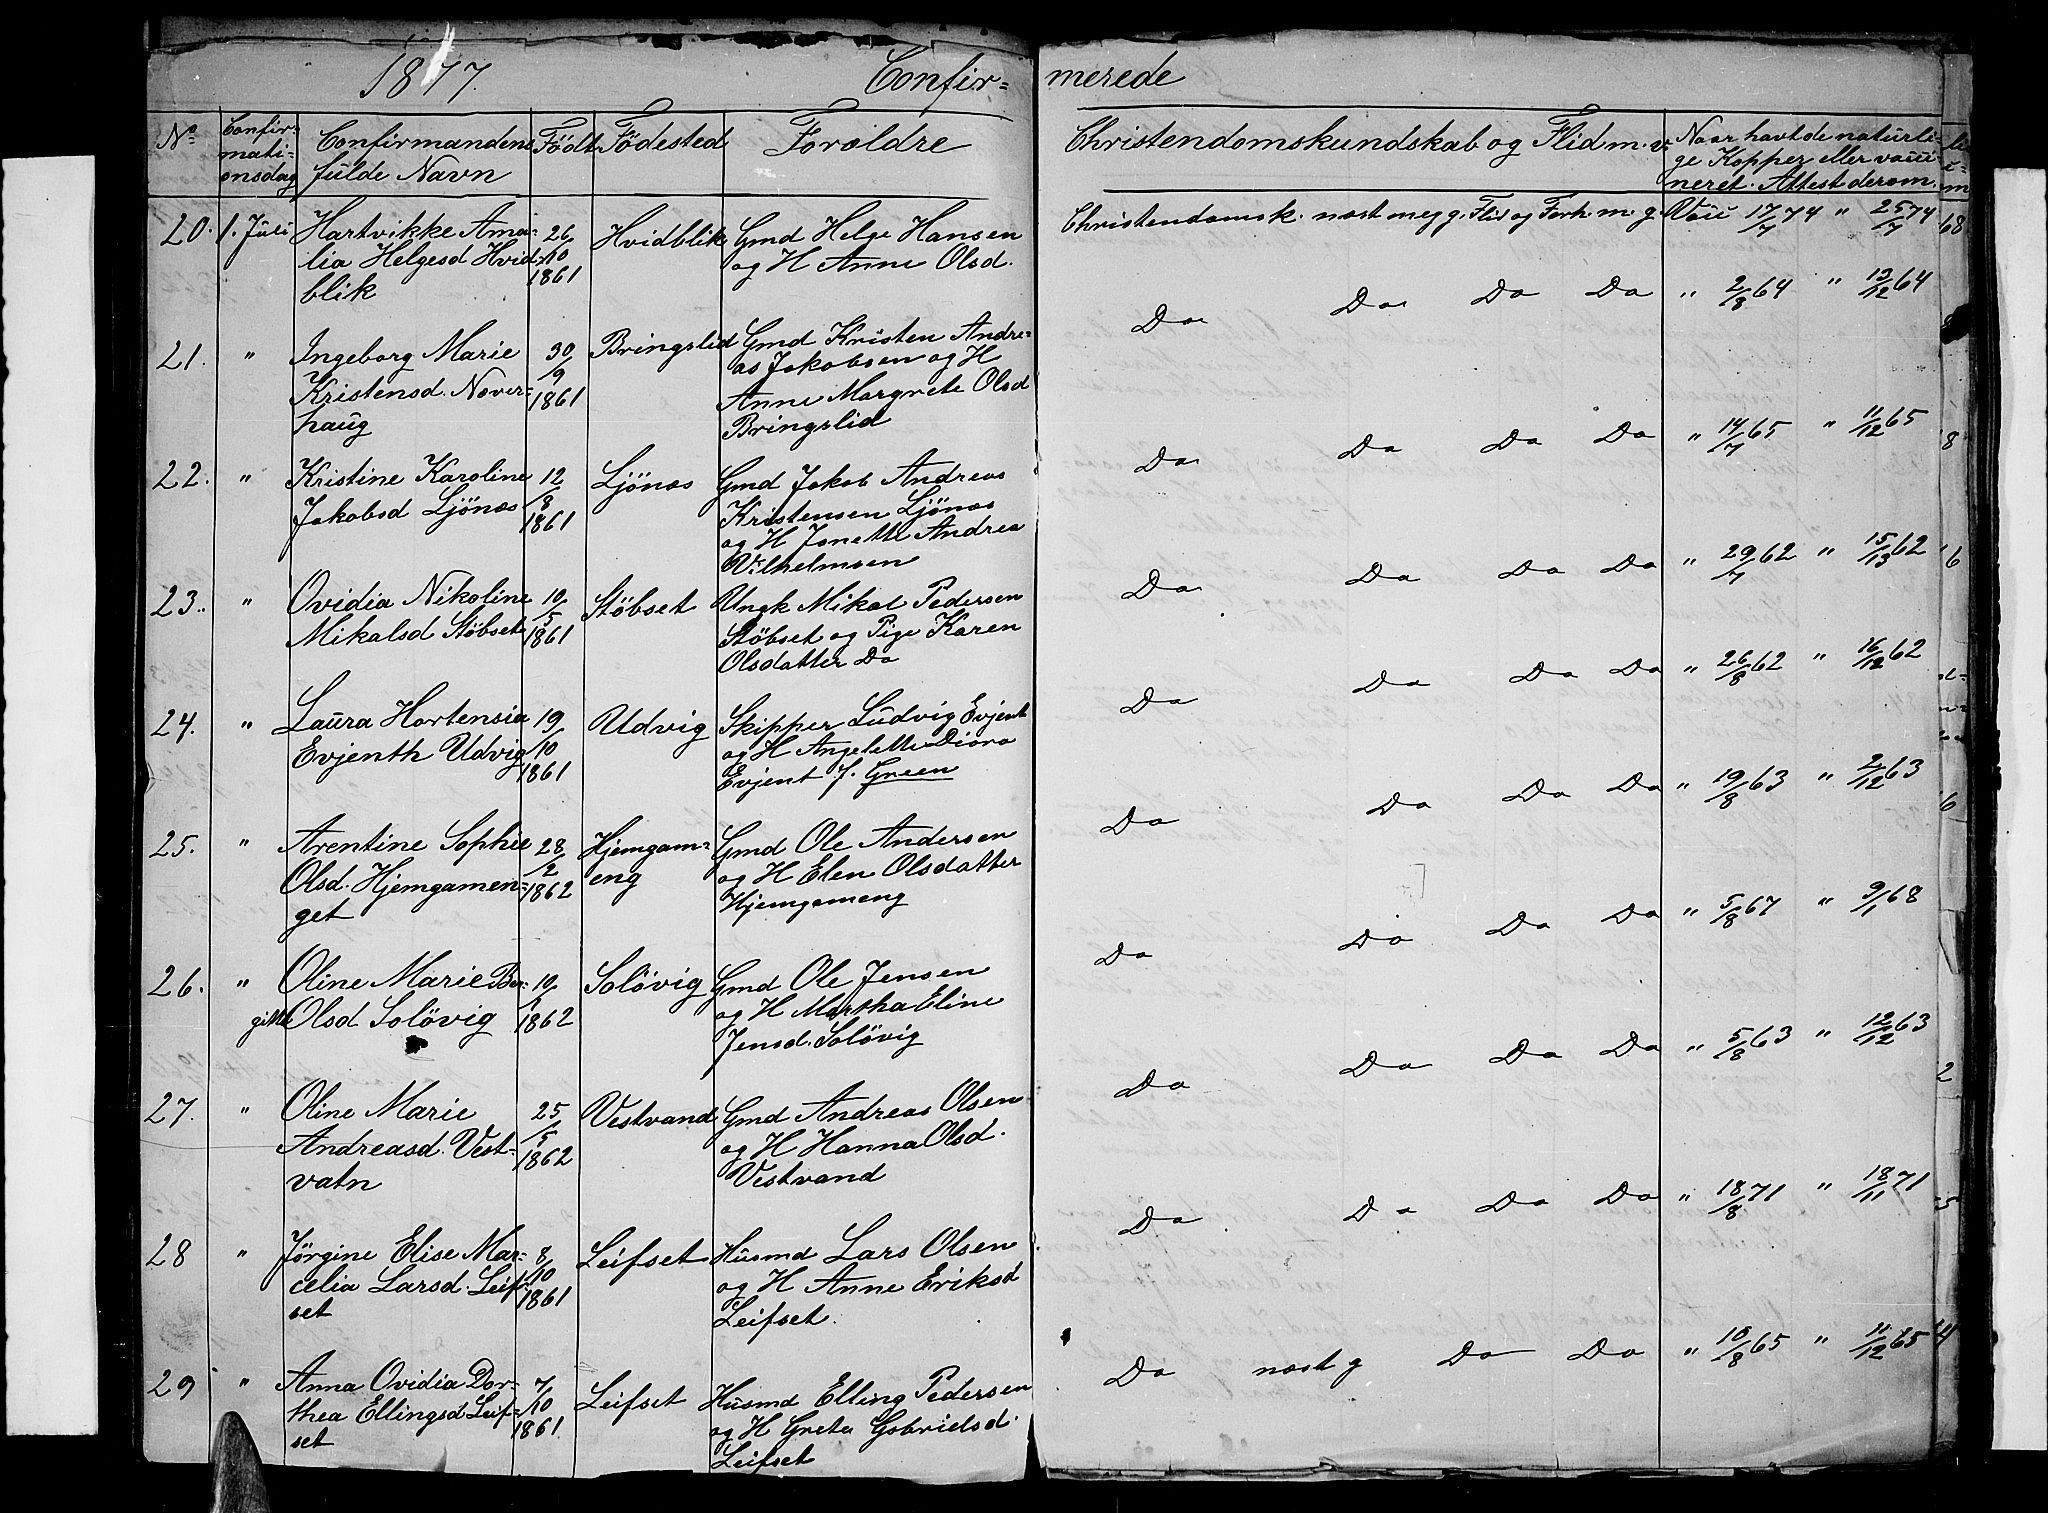 1877. Confir=
merede
No Confir=
mati=
onsdag Confirmandens
fulde Navn Födt Födested Forældre
Christendomskundskab og Flid m. v. Naar havt de naturli=
ge Kopper eller vacci=
neret. Attest derom.
20. 1. Juli Hartvikke Ama= 26/10 Hvidblik Gmd Helge Hansen
lia Helgesd Hvid= 1861 og H Anne Olsd.
blik
Christendomsk. næst meg g. Flid og Forh. m. g. Vacc 17/7 74 " 25/7 74
21. " Ingeborg Marie 30/9 Bringslid Gmd Kristen Andre=
Kristensd. Nover= 1861 as Jakobsen og H
haug Anne Margrete Olsd
Bringslid
Do Do Do Do " 2/8 64 " 13/12 64
22. " Kristine Karoline 12/8 Ljönæs Gmd Jakob Andreas
Jakobsd Ljönæs 1861 Kristensen Ljönæs
og H Janette Andrea
Vilhelmsen
Do Do Do Do " 14/7 65 " 11/12 65
23. " Ovidia Nikoline 10/5 Stöbset Ungk Mikal Pedersen
Mikalsd Stöbset 1861 Stöbset og Pige Karen
Olsdatter Do
Do Do Do Do " 29/7 62 " 15/13 62
24. " Laura Hortensia 19/10 Udvig Skipper Ludvig Evjent
Evjenth Udvig 1861 og H Angelette Diora
Evjent f. Green
Do Do Do Do " 26/8 62 " 16/12 62
25. " Arentine Sophie 28/2 Hjemgam= Gmd Ole Andersen
Olsd. Hjemgamen= 1862 eng og H Elen Olsdatter
get Hjemgameng
Do Do Do Do " 19/8 63 " 2/12 63
26. " Oline Marie Ber= 10/1 Solövig Gmd Ole Jensen
gitte Olsd Solövig 1862 og H Martha Eline
Jensd. Solövig
Do Do Do Do " 5/8 67 " 9/1 68
27. " Oline Marie 25/5 Vestvand Gmd Andreas Olsen
Andreasd. Vest= 1862 og H Hanna Olsd.
vatn Vestvand
Do Do Do Do " 5/8 63 " 12/12 63
28 " Jörgine Elise Mar= 8/10 Leifset Husmd Lars Olsen
celia Larsd. Leif= 1861 og H Anne Eriksd
set Leifset.
Do Do Do Do " 18/8 71 " 18/11 71
29 " Anna Ovidia Dor= 7/10 Leifset Husmd Elling Pedersen
thea Ellingsd Leif= 1861 og H Greta Gabrielsd.
set Leifset
Do næst g Do Do " 10/8 65 " 11/12 65